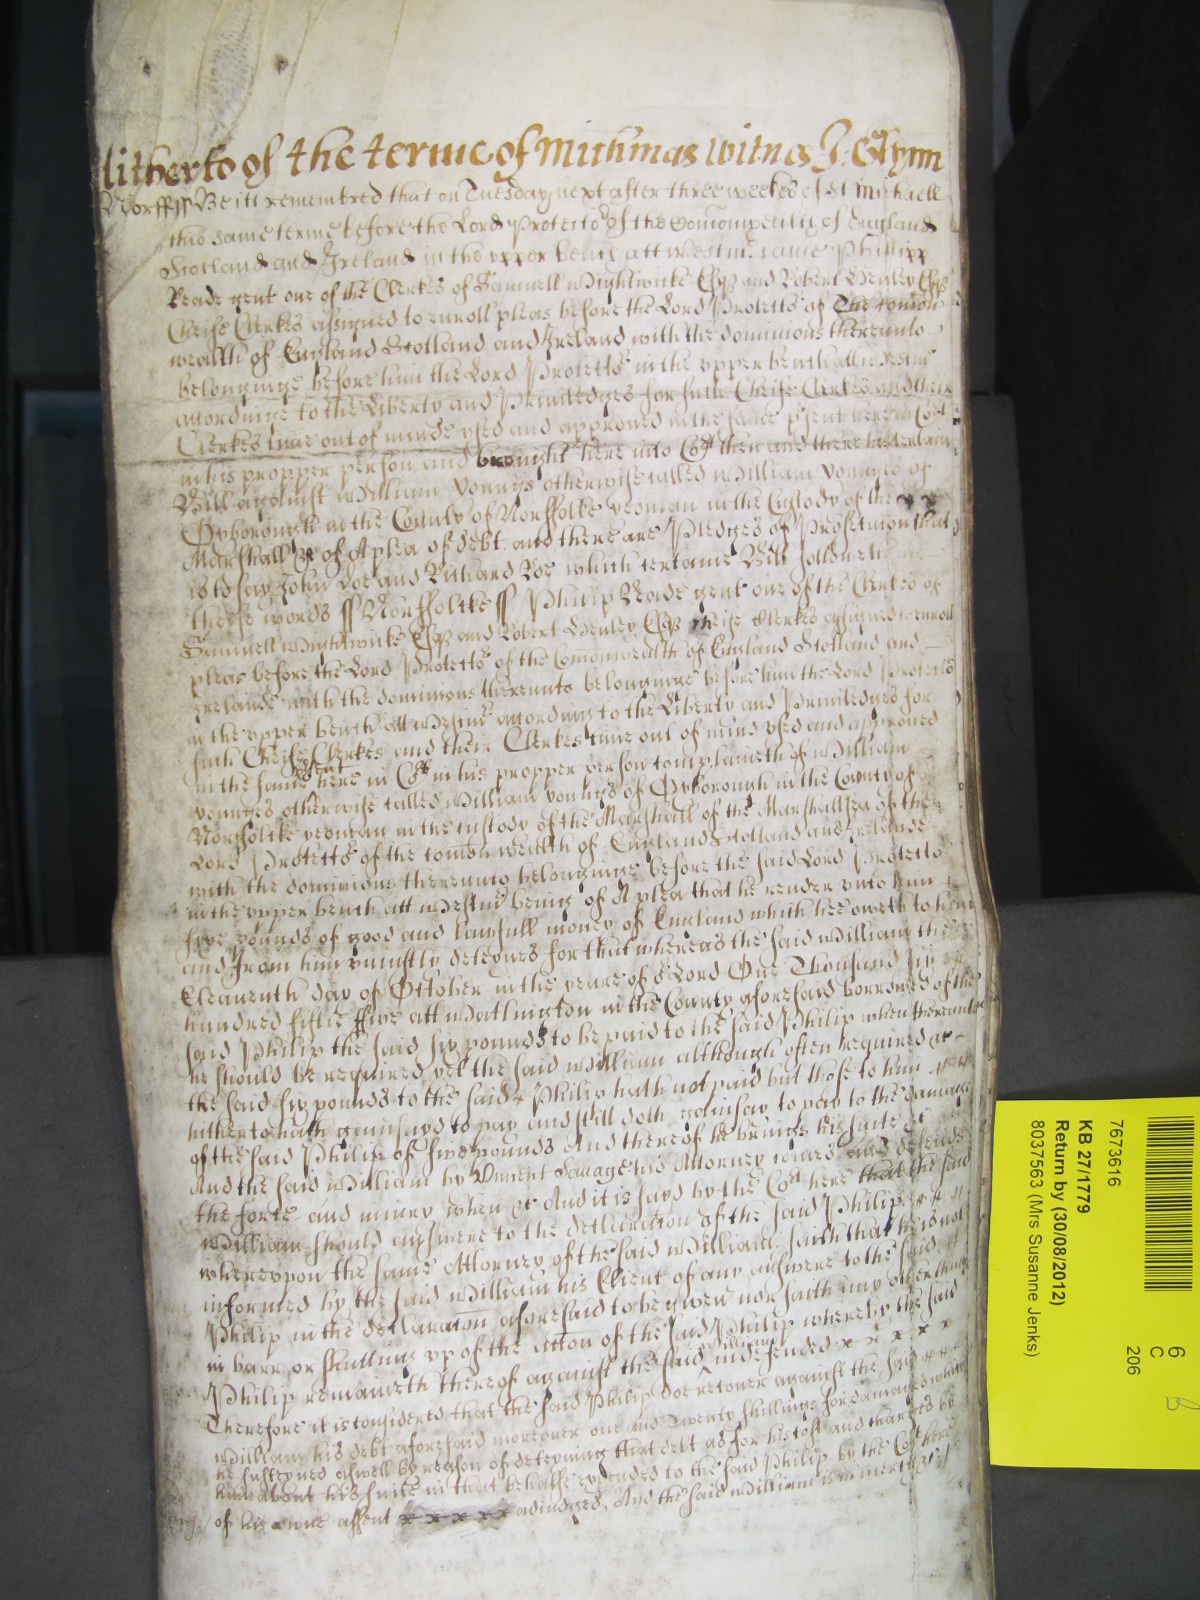 hitherto of the terme of Michmas witnes J: Glynn
Norff ss Be itt remembred that on Tuesday next after three weekes of St Michaell
this same terme before the Lord Protector of the Comonwealth of England
Scotland and Ireland in the upper bench att Westmr came Phillipp
Reade gent one of the Clerkes of Samuell Wightwicke Esqr and Robert Henley Esqr
Cheife Clerkes assigned to enroll pleas before the Lord Protector of The Comon
wealth of England Scotland and Ireland with the dominions thereunto
belonginge before him the Lord Protector in the upper bench att Westmr
accordinge to the Liberty and Priviledges for such Cheife Clerkes and their
Clerkes time out of minde used and approved in the same psent here in Cort
in his propper person and brought here into Cort then and there his certain
Bill against William Younges otherwise called William Younges of
Oxborough in the County of Norffolke yeoman in the Custody of the x x
Marshall &c of A plea of debt. and there are Pledges of Prosecution that
is to say John Doe and Richard Roe which certaine Bill followeth in
these words ss Norffolke ss Philip Reade gent one of the Clerkes of
Samuell Wightwicke Esqr and Robert Henley Esqr cheife Clerkes assigned to enroll
pleas before the Lord Protector of the Comonwealth of England Scotland and
Ireland with the dominions thereunto belonginge before him the Lord Protector
in the upper bench att Westmr according to the Liberty and Priviledges for
such Cheife Clerkes and their Clerkes time out of mind used and approved
in the same psent here in Cort in his propper person complaineth of William
Younges otherwise called William Younges of Oxborough in the County of
Norffolke yeoman in the custody of the Marshall of the Marshallsea of the
Lord Protector of the comon wealth of England Scotland and Ireland
with the dominions thereunto belonginge before the said Lord Protector
in the upper bench att Westmr being of A plea that he render unto him
sixe pounds of good and lawfull money of England which hee oweth to him
and from him uniustly deteynes for that whereas the said William the
Eleaventh day of October in the yeare of or Lord One Thousand six
hundred fiftie ffive att Watlington in the County aforesaid borrowed of the
said Philip the said six pounds to be paid to the said Philip when thereunto
he should be required yet the said William although often required &c
the said six pounds to the said Philip hath not paid but those to him
hitherto hath gainsayd to pay and still doth gainsay to pay to the damage
of the said Philip of five pounds And thereof he brings his suite &c
And the said William by Vincent Savage his Attorney comes and defends
the force and iniury when &c And it is sayd by the Cort here that the said
William should answere to the declaration of the said Philip
whereupon the same Attorney of the said William saith that he is not
informed by the said William his Client of any answere to the said
Philip in the declaration aforesaid to be given nor saith any other thing
in barr or shutting up of the action of the said Philip whereby the said
Philip remaineth thereof against the said William undefended x x x x x
Therefore it is considered that the said Philip doe recover against the said
William his debt aforesaid moreover one and Twenty shillings for damages which
he susteyned aswell by reason of deteyning that debt as for his costs and charges by
him about his suite in that behalfe expended to the said Philip by the Cort here
of his owne assent adiudged, And the said William is in mercy &c
7673616
KB 27/1779
Return by (30/08/2012)
8037563 (Mrs Susanne Jenks)
6
C
206
B